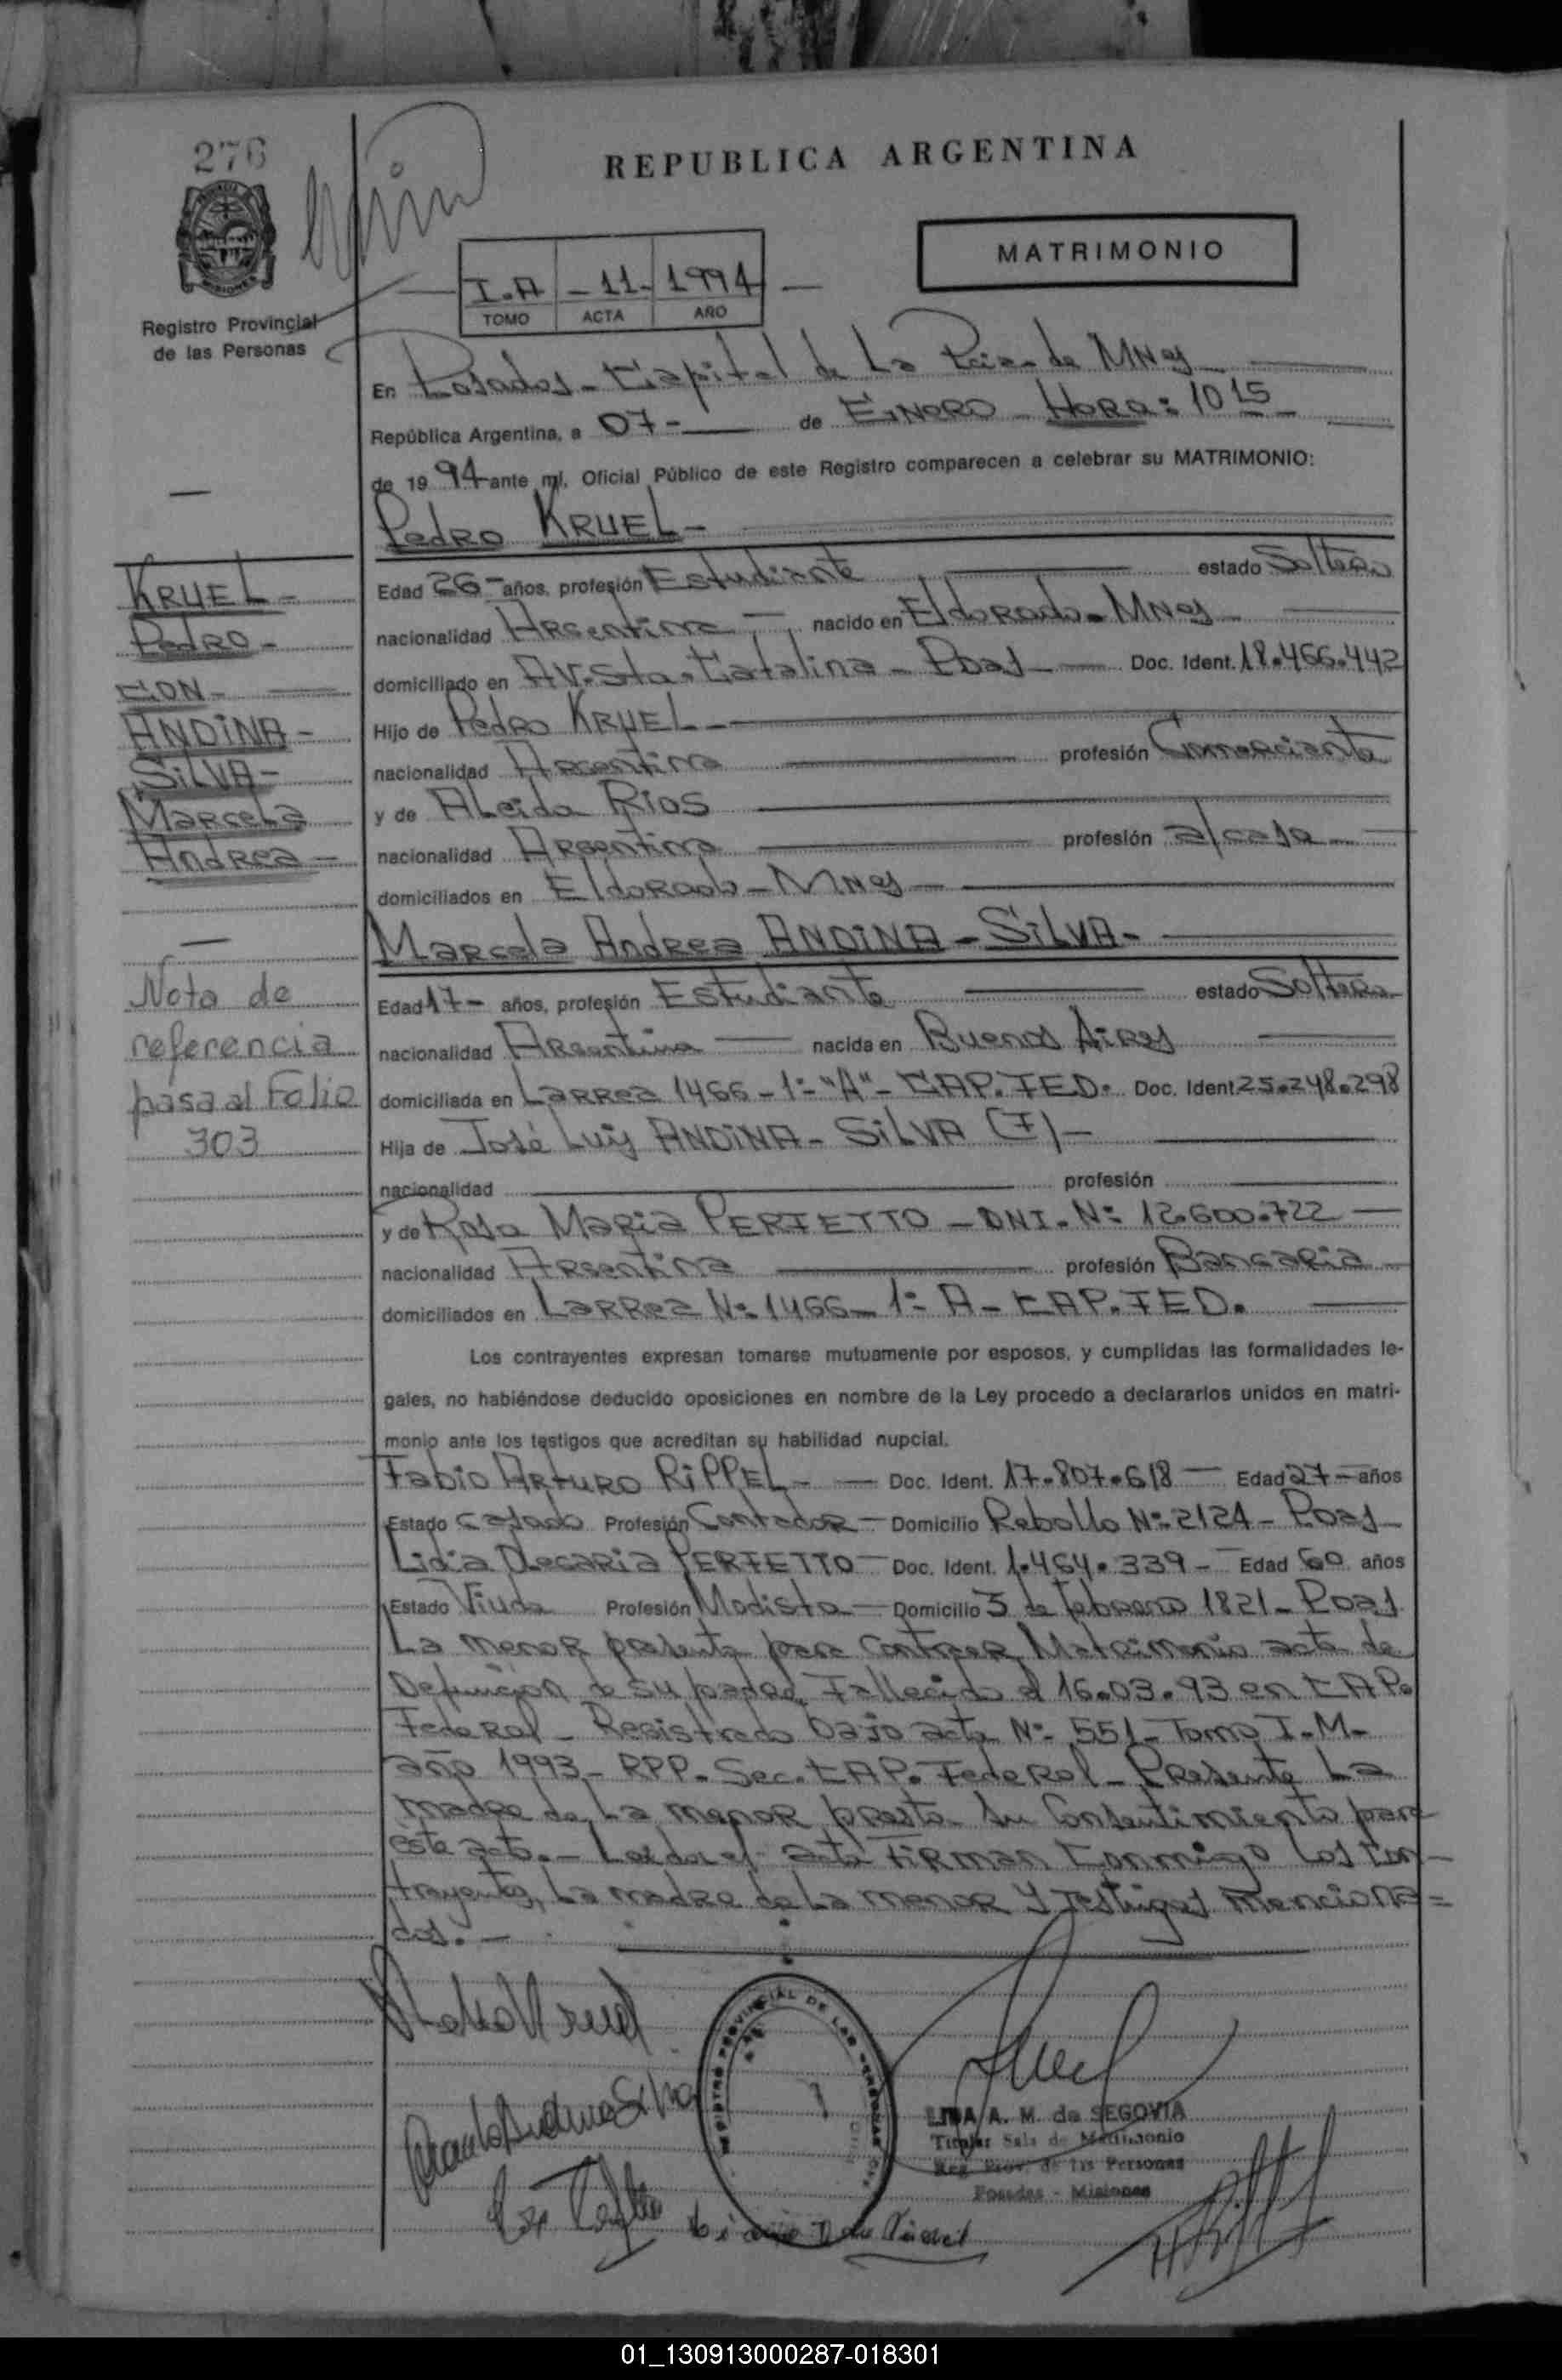 276
REPUBLICA ARGENTINA
MATRIMONIO
I.A - 11 - 1994
TOMO ACTA AÑO
Registro Provincial
de las Personas
En Posadas - Capital de La Pcia. de Mnes
República Argentina, a 07 - de ENERO - HORA: 10 15 -
de 19 94 ante mí, Oficial Público de este Registro comparecen a celebrar su MATRIMONIO:
Pedro KRUEL -
Edad 26 - años, profesión Estudiante estado Soltero
nacionalidad Argentina - nacido en Eldorado - Mnes
domiciliado en AV. Sta. Catalina - Pdas - Doc. Ident. 18.466.442
Hijo de Pedro KRUEL -
nacionalidad Argentina profesión Comerciante
y de ALeida Rios
nacionalidad Argentina profesión a/casa
domiciliados en Eldorado - Mnes
Marcela Andrea ANDINA - SILVA -
Edad 17 - años, profesión Estudiante estado Soltera
nacionalidad Argentina - nacida en Buenos Aires
domiciliada en Larrea 1466 - 1º "A" - CAP. FED. Doc. Ident. 25.248.298
Hija de José Luis ANDINA - SILVA (F) -
nacionalidad profesión
y de Rosa Maria PERFETTO - DNI. Nº 12.600.722
nacionalidad Argentina profesión Bancaria
domiciliados en Larrea Nº 1466 - 1º A - CAP. FED.
Los contrayentes expresan tomarse mutuamente por esposos, y cumplidas las formalidades le-
gales, no habiéndose deducido oposiciones en nombre de la Ley procedo a declararlos unidos en matri-
monio ante los testigos que acreditan su habilidad nupcial.
Fabio Arturo RIPPEL - Doc. Ident. 17.807.618 - Edad 27 - años
Estado casado Profesión Contador - Domicilio Rebollo Nº 2124 - Pdas
Lidia PERFETTO - Doc. Ident. 1.464.339 - Edad 60 años
Estado Viuda Profesión Modista - Domicilio 3 de febrero 1821 - Pdas
La menor presenta para contraer Matrimonio acta de
Defunción de su padre, Fallecido el 16.03.93 en CAP.
Federal - Registrado bajo acta Nº 551 - Tomo I.M.
año 1993 - RPP. Sec. CAP. Federal - Presente La
madre de La menor presta su Consentimiento para
este acto. - Leida el acta Firman Conmigo Los Con-
trayentes, La madre de La menor y testigos menciona=
dos. -
KRUEL -
Pedro -
CON -
ANDINA -
SILVA -
Marcela
Andrea -
Nota de
referencia
pasa al Folio
303
REGISTRO PROVINCIAL DE LAS PERSONAS
LIDA A. M. de SEGOVIA
Titular Sala de Matrimonio
Reg. Prov. de las Personas
Posadas - Misiones
01_130913000287-018301